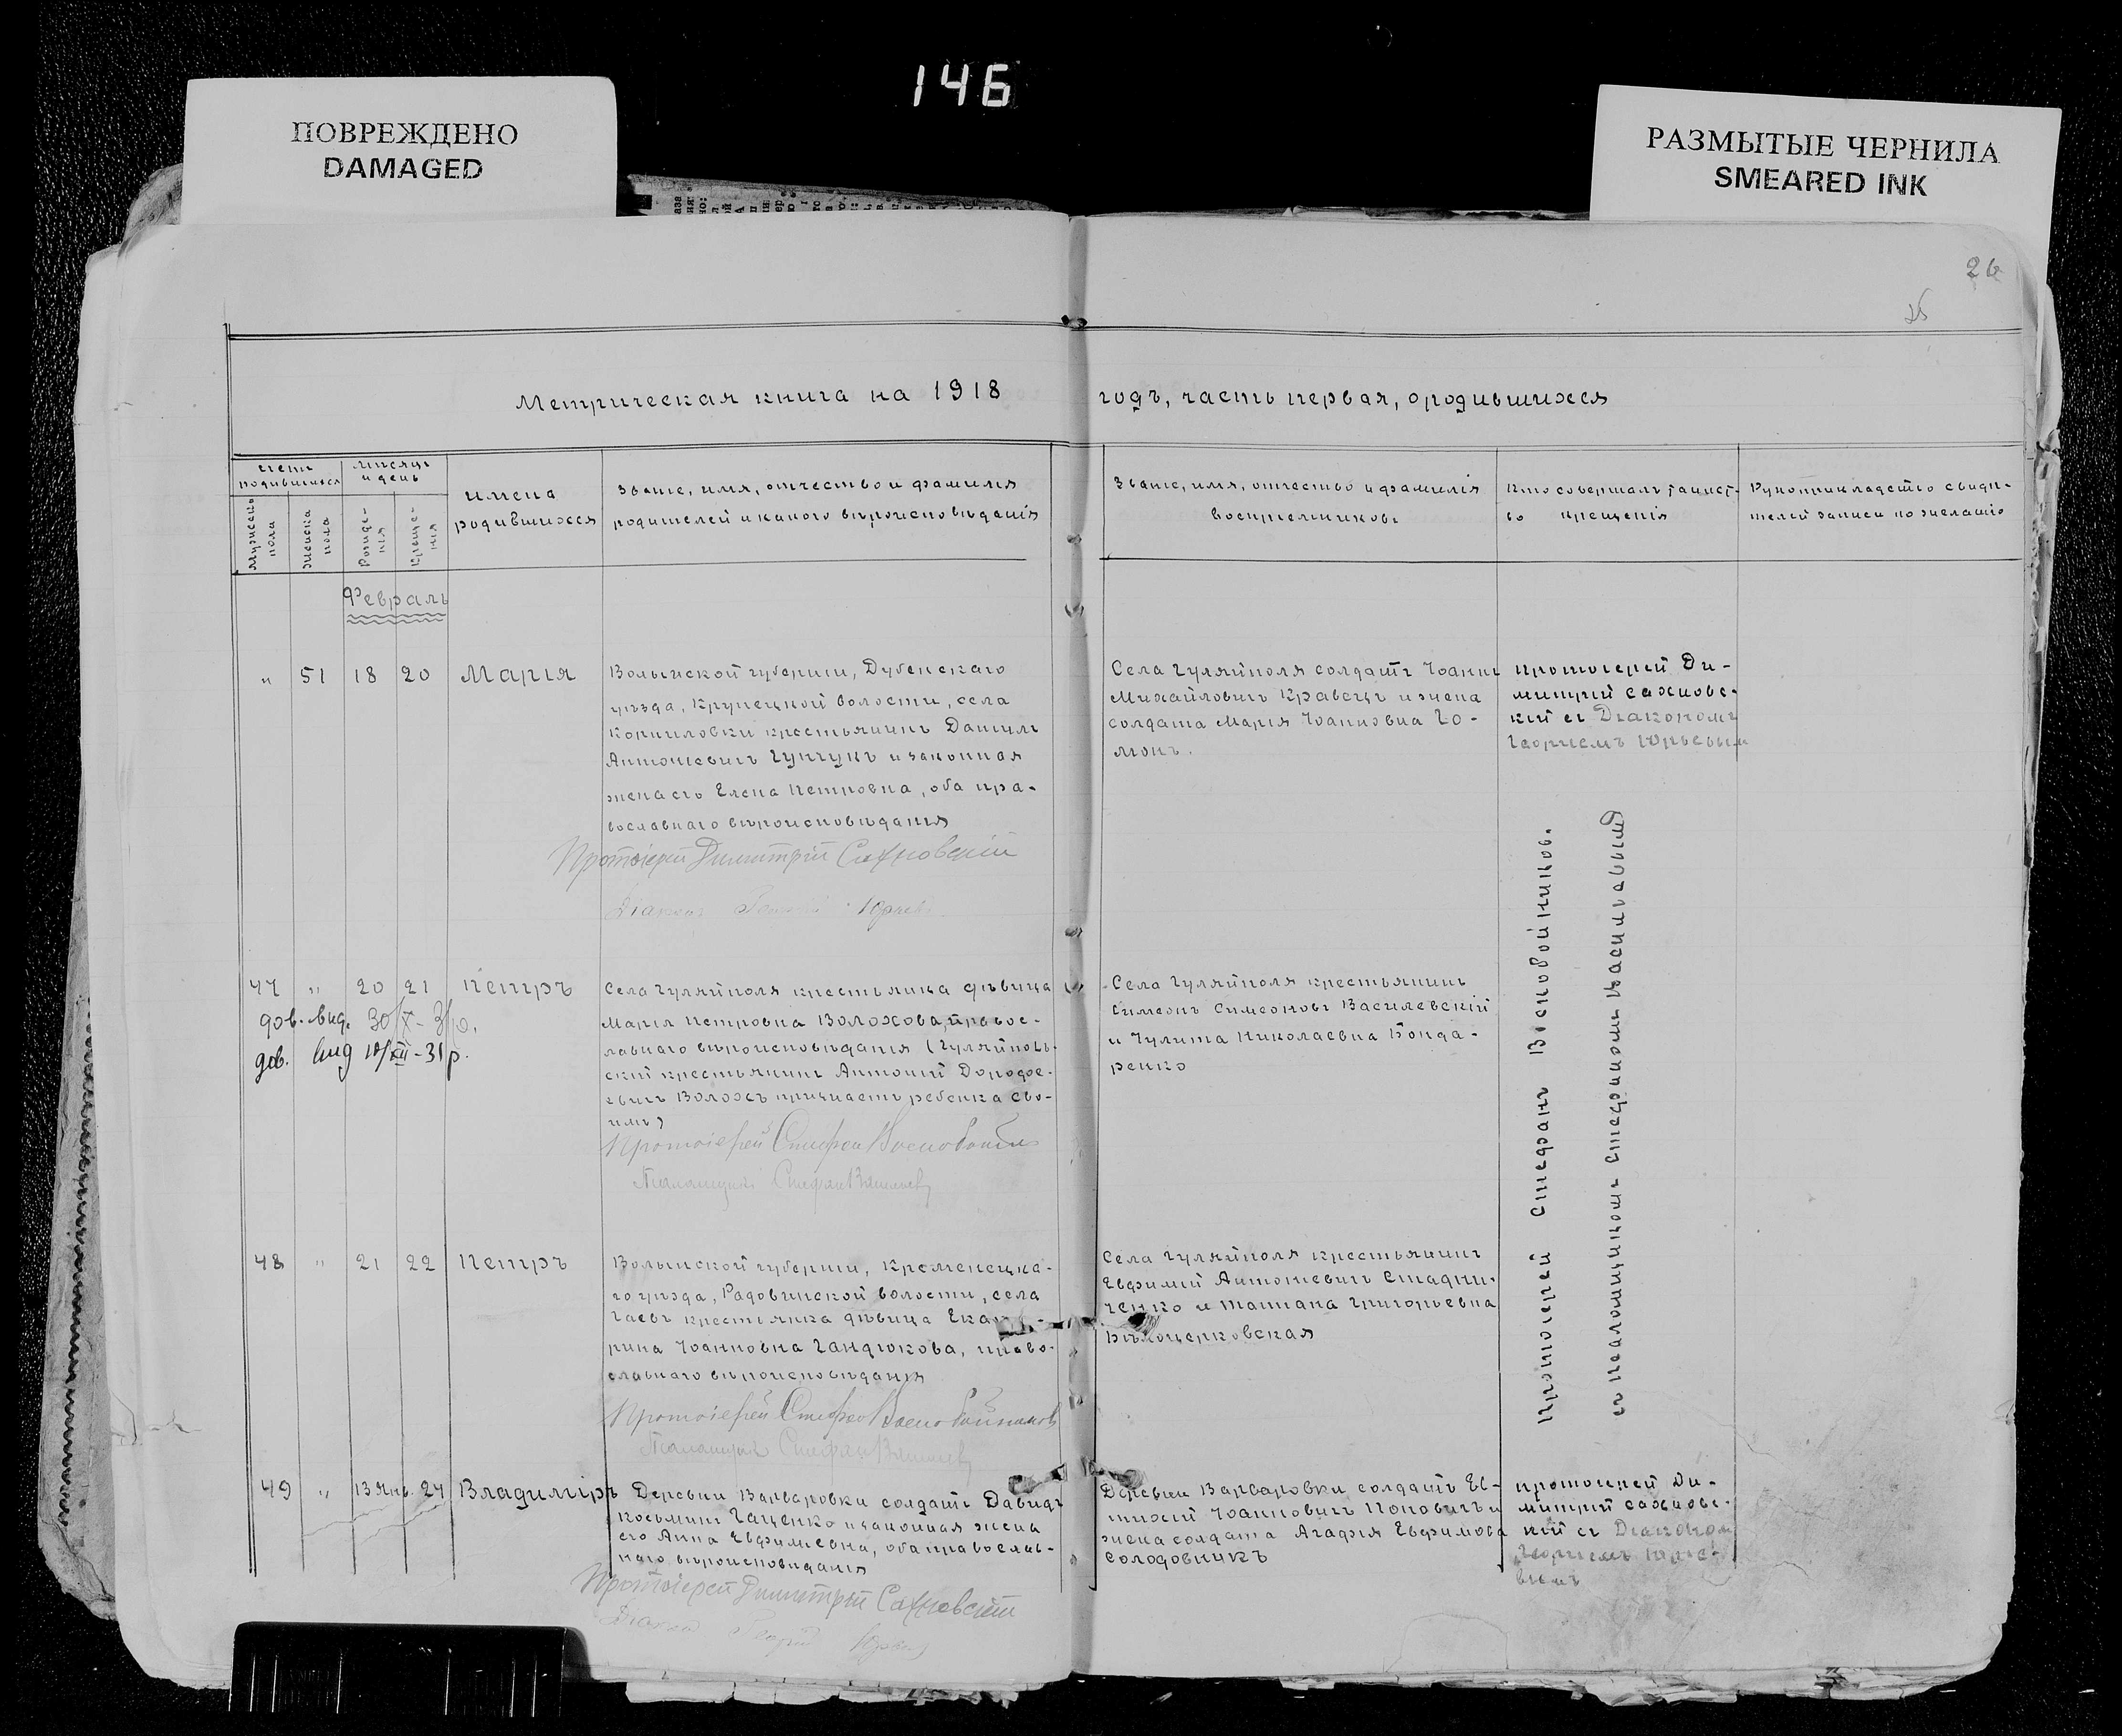 146
ПОВРЕЖДЕНО
DAMAGED
РАЗМЫТЫЕ ЧЕРНИЛА
SMEARED INK
26
Метрическая книга на 1918 годъ, часть первая, о родившихся
родившихся
мѣсяцъ
и день
Мужеска
пола
Женска
пола
Рожде-
нія
Креще-
нія
имена
родившихся
Званіе, имя, отчество и фамилія
родителей и какого вѣроисповѣданія
Званіе, имя, отчество и фамилія
воспріемниковъ
Кто совершалъ таинст-
во крещенія
Рукоприкладство свидѣ-
телей записи по желанію
Февраль
" 51 18 20 Марія
Волынской губерніи, Дубенскаго
уѣзда, Крупецкой волости, села
Корниловки крестьянинъ Даніилъ
Антоніевичъ и законная
жена его Елена Петровна, оба пра-
вославнаго вѣроисповѣданія
Протоіерей Димитрій Сахновскій
Діаконъ Георгій Юрьевъ
Села Гуляйполя солдатъ Іоаннъ
Михайловичъ Кравецъ и жена
солдата Марія Іоанновна Го-
монъ.
протоіерей Ди-
митрій Сахновс-
кій съ Діакономъ
Георгіемъ Юрьевым
47 " 20 21 Петръ
дов. выд. 30/X-31 р.
дов. выд 10/XII-31 р.
Села Гуляйполя крестьянка дѣвица
Марія Петровна Волохова, правос-
лавнаго вѣроисповѣданія (Гуляйполь-
скій крестьянинъ Антоній Дорофе-
евичъ Волохъ признаетъ ребенка сво-
имъ)
Протоіерей Стефан Воснобойник
Псаломщикъ Стефан Васильев
Села Гуляйполя крестьянинъ
Симеонъ Симеоновъ Василевскій
и Іулита Николаевна Бонда-
ренко
Протоіерей Стефанъ Воснобойников.
съ псаломщикомъ Стефаномъ Васильевымъ
48 " 21 22 Петръ
Волынской губерніи, Кременецка-
го уѣзда, Радовинской волости, села
крестьянка дѣвица
рина Іоанновна Гандюкова, право-
славнаго вѣроисповѣданія
Протоіерей Стефан Воснобойников
Псаломщикъ Стефан Васильев
Села Гуляйполя крестьянинъ
Евфимій Антоніевичъ Стадни-
ченко и Татіана Григорьевна
Бѣлоцерковская
49 " 13 Янв. 24 Владиміръ
Деревни Варваровки солдатъ Давидъ
Косьминъ Гащенко и законная жена
его Анна Евфиміевна, оба православ-
наго вѣроисповѣданія
Протоіерей Димитрій Сахновскій
Діаконъ Георгій Юрьевъ
Деревни Варваровки солдатъ Ев-
тихій Іоанновичъ Поповичъ и
жена солдата Агафія Евфимова
Солодовникъ
протоіерей Ди-
митрій Сахновс-
кій съ Діакном
Георгіемъ Юрье-
вымъ